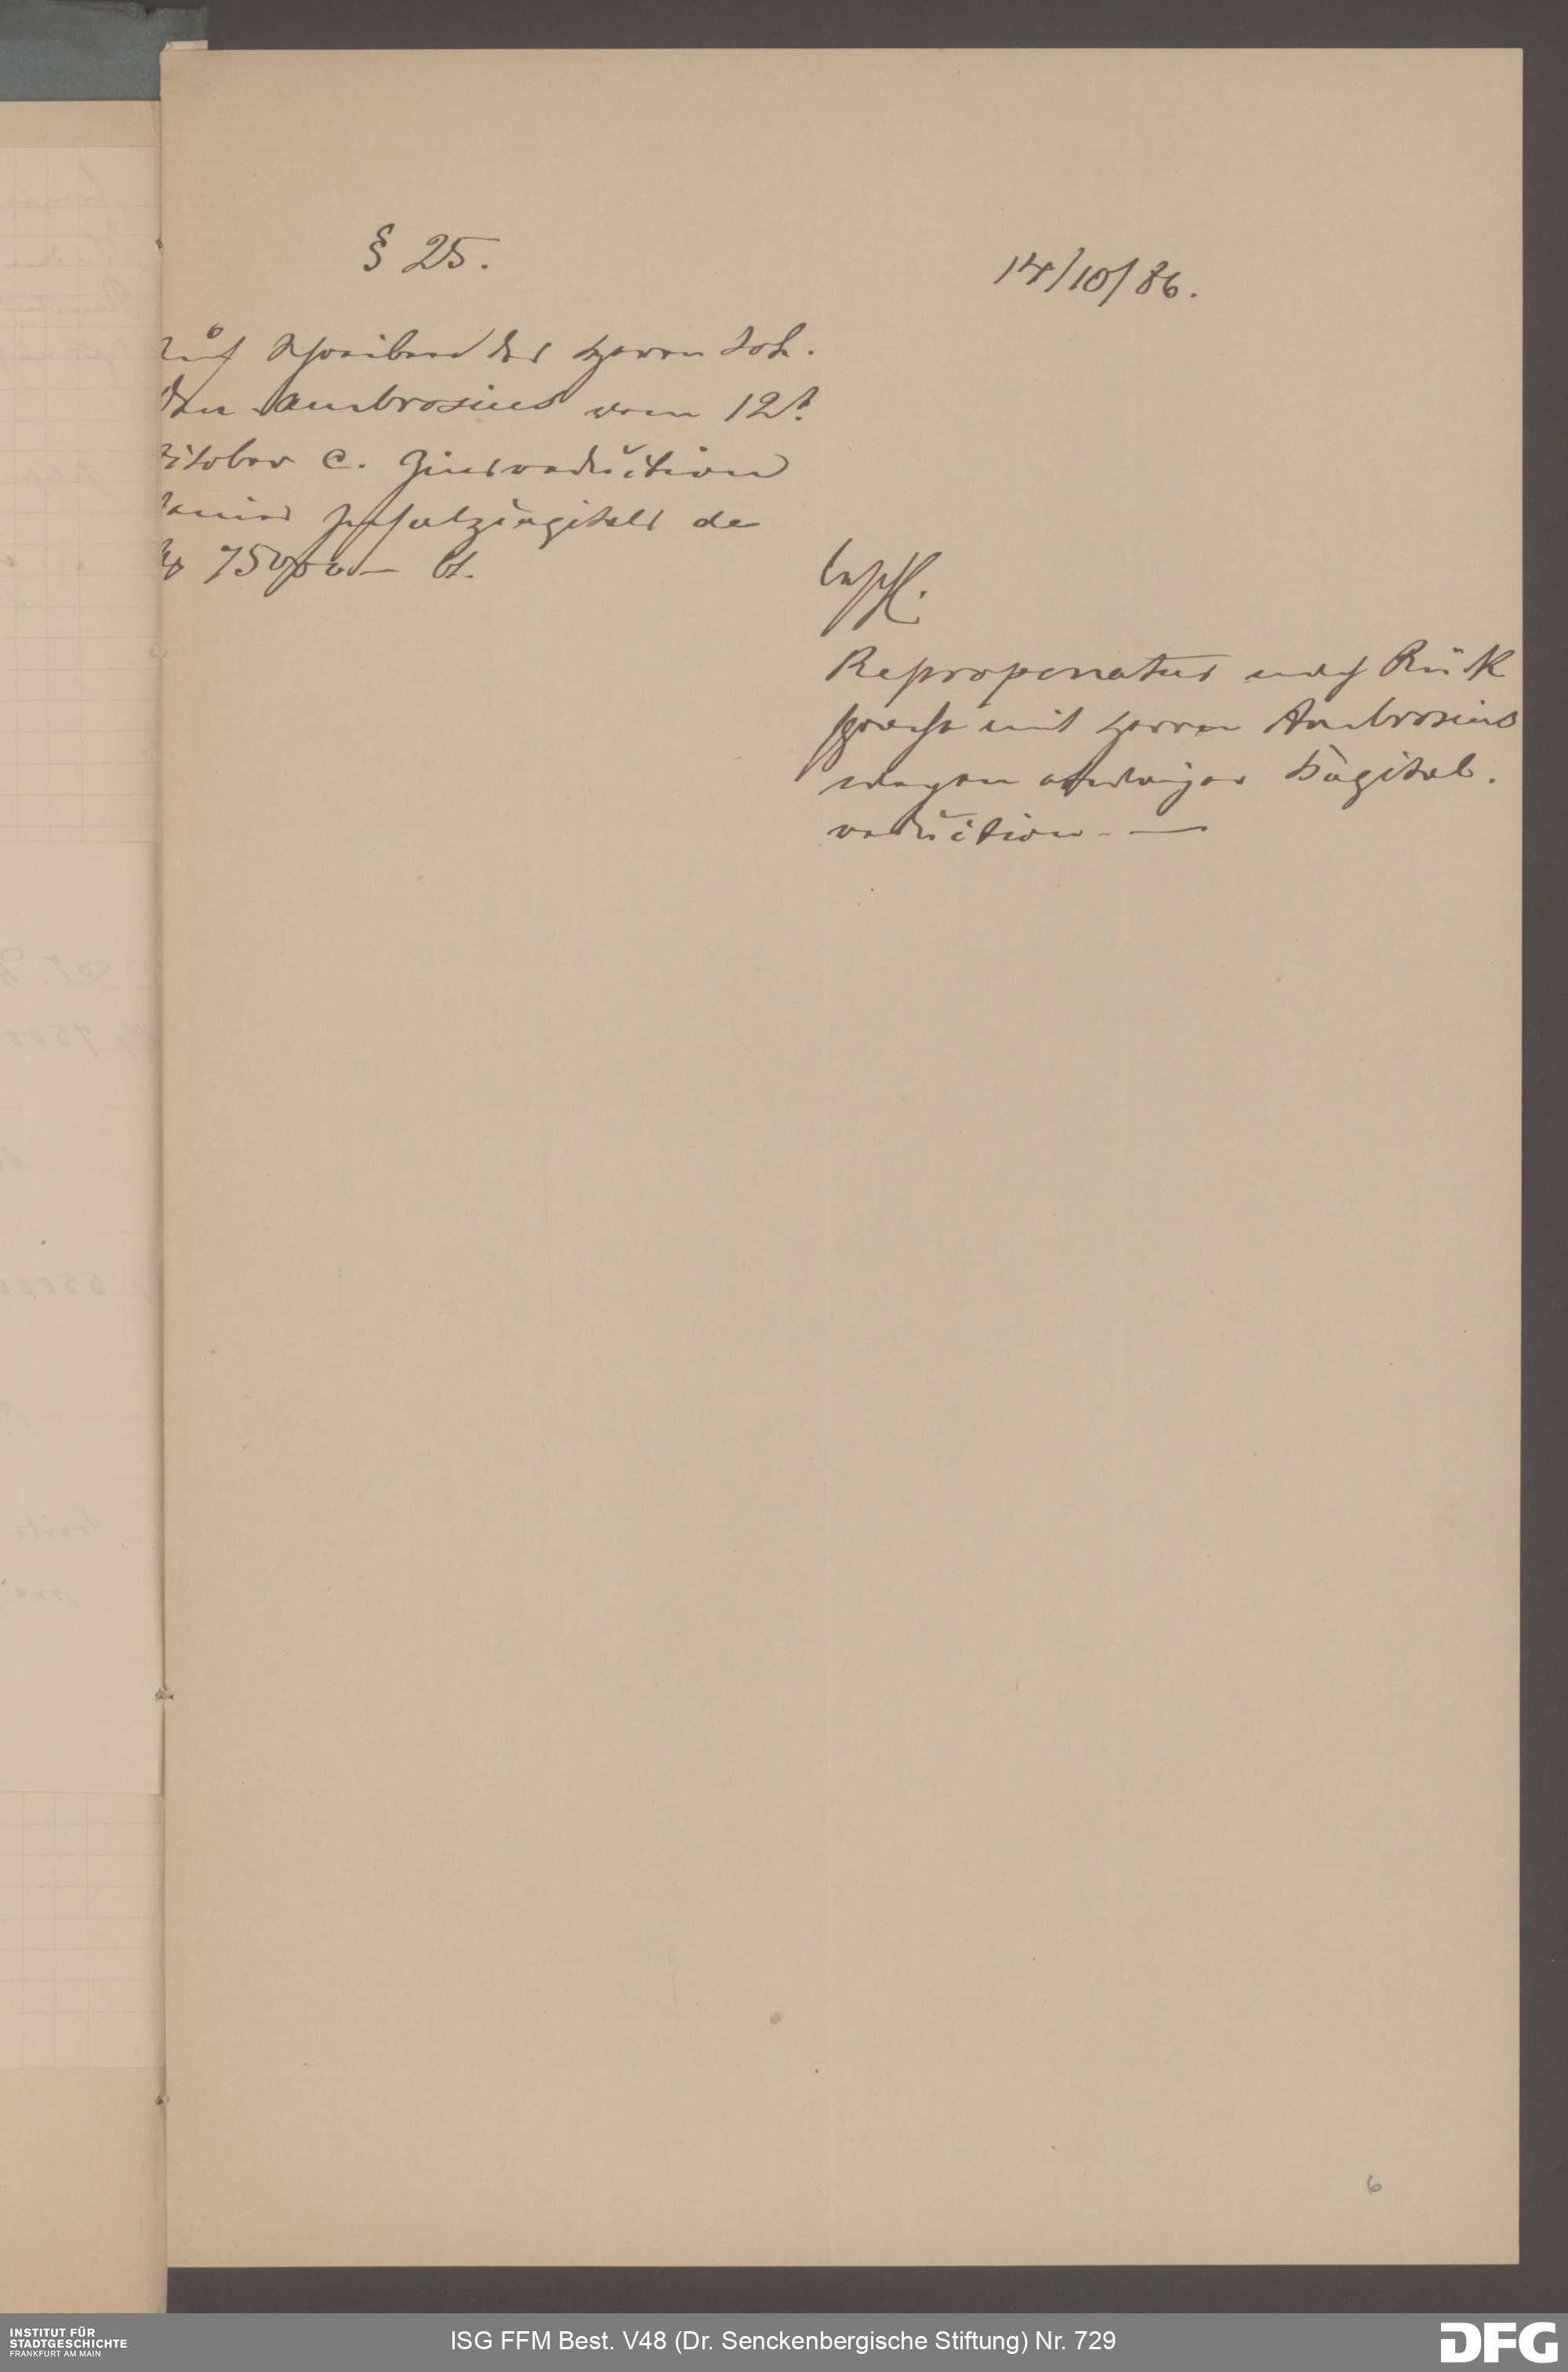 § 25.
14/10/86.
Auf Schreiben des Herrn Joh.
Dan Ambrosius vom 12t
October c. Zinsreduction
seines Insatzkapitals de
M 75000 — bt.
Beschl.
Reproponatur nach Rück
sprache mit Herrn Ambrosius
wegen Kapital.
reduction. —
6
INSTITUT FÜR
STADTGESCHICHTE
FRANKFURT AM MAIN
ISG FFM Best. V48 (Dr. Senckenbergische Stiftung) Nr. 729
DFG